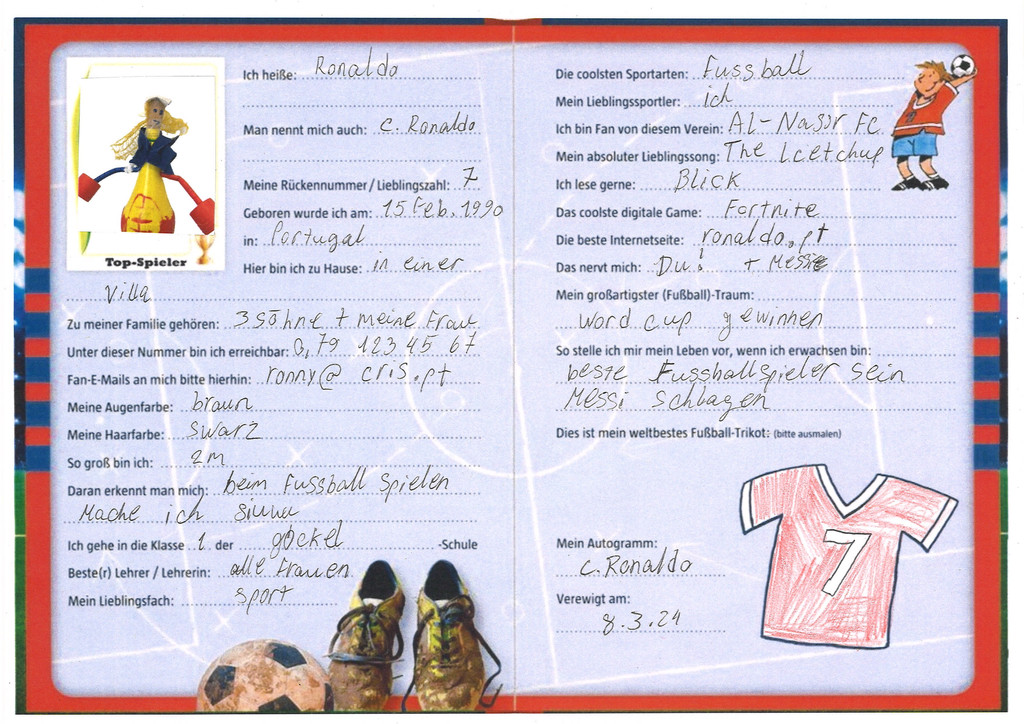 Top-Spieler
Ich heiße: Ronaldo
Man nennt mich auch: C. Ronaldo
Meine Rückennummer / Lieblingszahl: 7
Geboren wurde ich am: 15 Feb. 1990
in: Portugal
Hier bin ich zu Hause: in einer
Villa
Zu meiner Familie gehören: 3 Söhne + meine Frau
Unter dieser Nummer bin ich erreichbar: 0,79 123 45 67
Fan-E-Mails an mich bitte hierhin: ronny@ cris.pt
Meine Augenfarbe: braun
Meine Haarfarbe: swarz
So groß bin ich: 2m
Daran erkennt man mich: beim Fussball spielen
Mache ich siuuu
Ich gehe in die Klasse 1. der göckel -Schule
Beste(r) Lehrer / Lehrerin: alle Frauen
Mein Lieblingsfach: sport
Die coolsten Sportarten: Fussball
Mein Lieblingssportler: ich
Ich bin Fan von diesem Verein: Al-Nassr FC
Mein absoluter Lieblingssong: The Lcetchup
Ich lese gerne: Blick
Das coolste digitale Game: Fortnite
Die beste Internetseite: ronaldo.pt
Das nervt mich: Du! + Messi
Mein großartigster (Fußball)-Traum:
word cup gewinnen
So stelle ich mir mein Leben vor, wenn ich erwachsen bin:
beste Fussballspieler sein
Messi schlagen
Dies ist mein weltbestes Fußball-Trikot: (bitte ausmalen)
7
Mein Autogramm:
C. Ronaldo
Verewigt am:
8.3.24